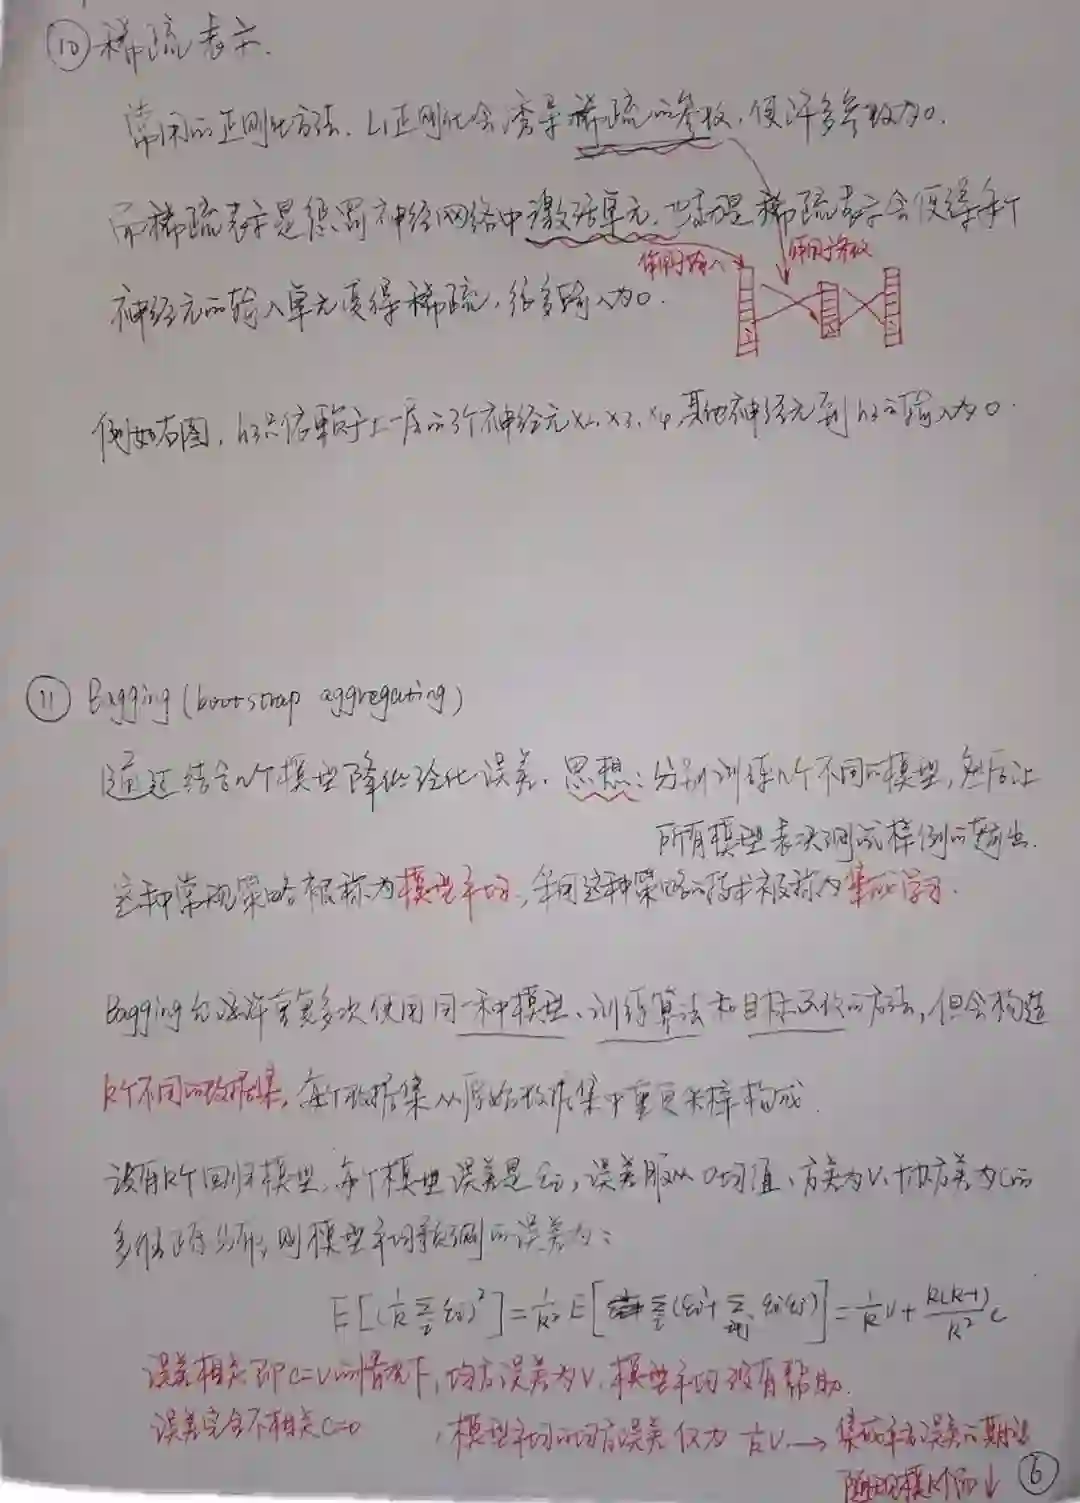 ⑩ 稀疏表示.
常用的正则化方法. L1正则化会诱导稀疏的参数, 使许多参数为0.
而稀疏表示是惩罚神经网络中激活单元, 也就是稀疏表示会使得每个
作用于输入 作用于参数
神经元的输入单元变得稀疏, 很多输入为0.
例如右图, h3只依赖于上一层的3个神经元x2、x3、x4, 其他神经元到h3的输入为0.
⑪ Bagging (bootstrap aggregating)
通过结合几个模型降低泛化误差. 思想: 分别训练几个不同的模型, 然后让
所有模型表决测试样例的输出.
这种常规策略被称为模型平均, 采用这种策略的技术被称为集成学习.
Bagging允许重复多次使用同一种模型、训练算法和目标函数的方法, 但会构造
k个不同的数据集, 每个数据集从原始数据集中重复采样构成.
设有k个回归模型, 每个模型误差是εi, 误差服从0均值、方差为v、协方差为c的
多维正态分布, 则模型平均预测的误差为:
E[(1/k Σ_i εi)²] = 1/k² E[Σ_i(εi² + Σ_{i≠j} εiεj)] = 1/k v + k(k-1)/k² c
误差相关即c=v的情况下, 均方误差为v, 模型平均没有帮助.
误差完全不相关c=0 , 模型平均的均方误差仅为 1/k v. → 集成平方误差的期望
随 ↓
⑥